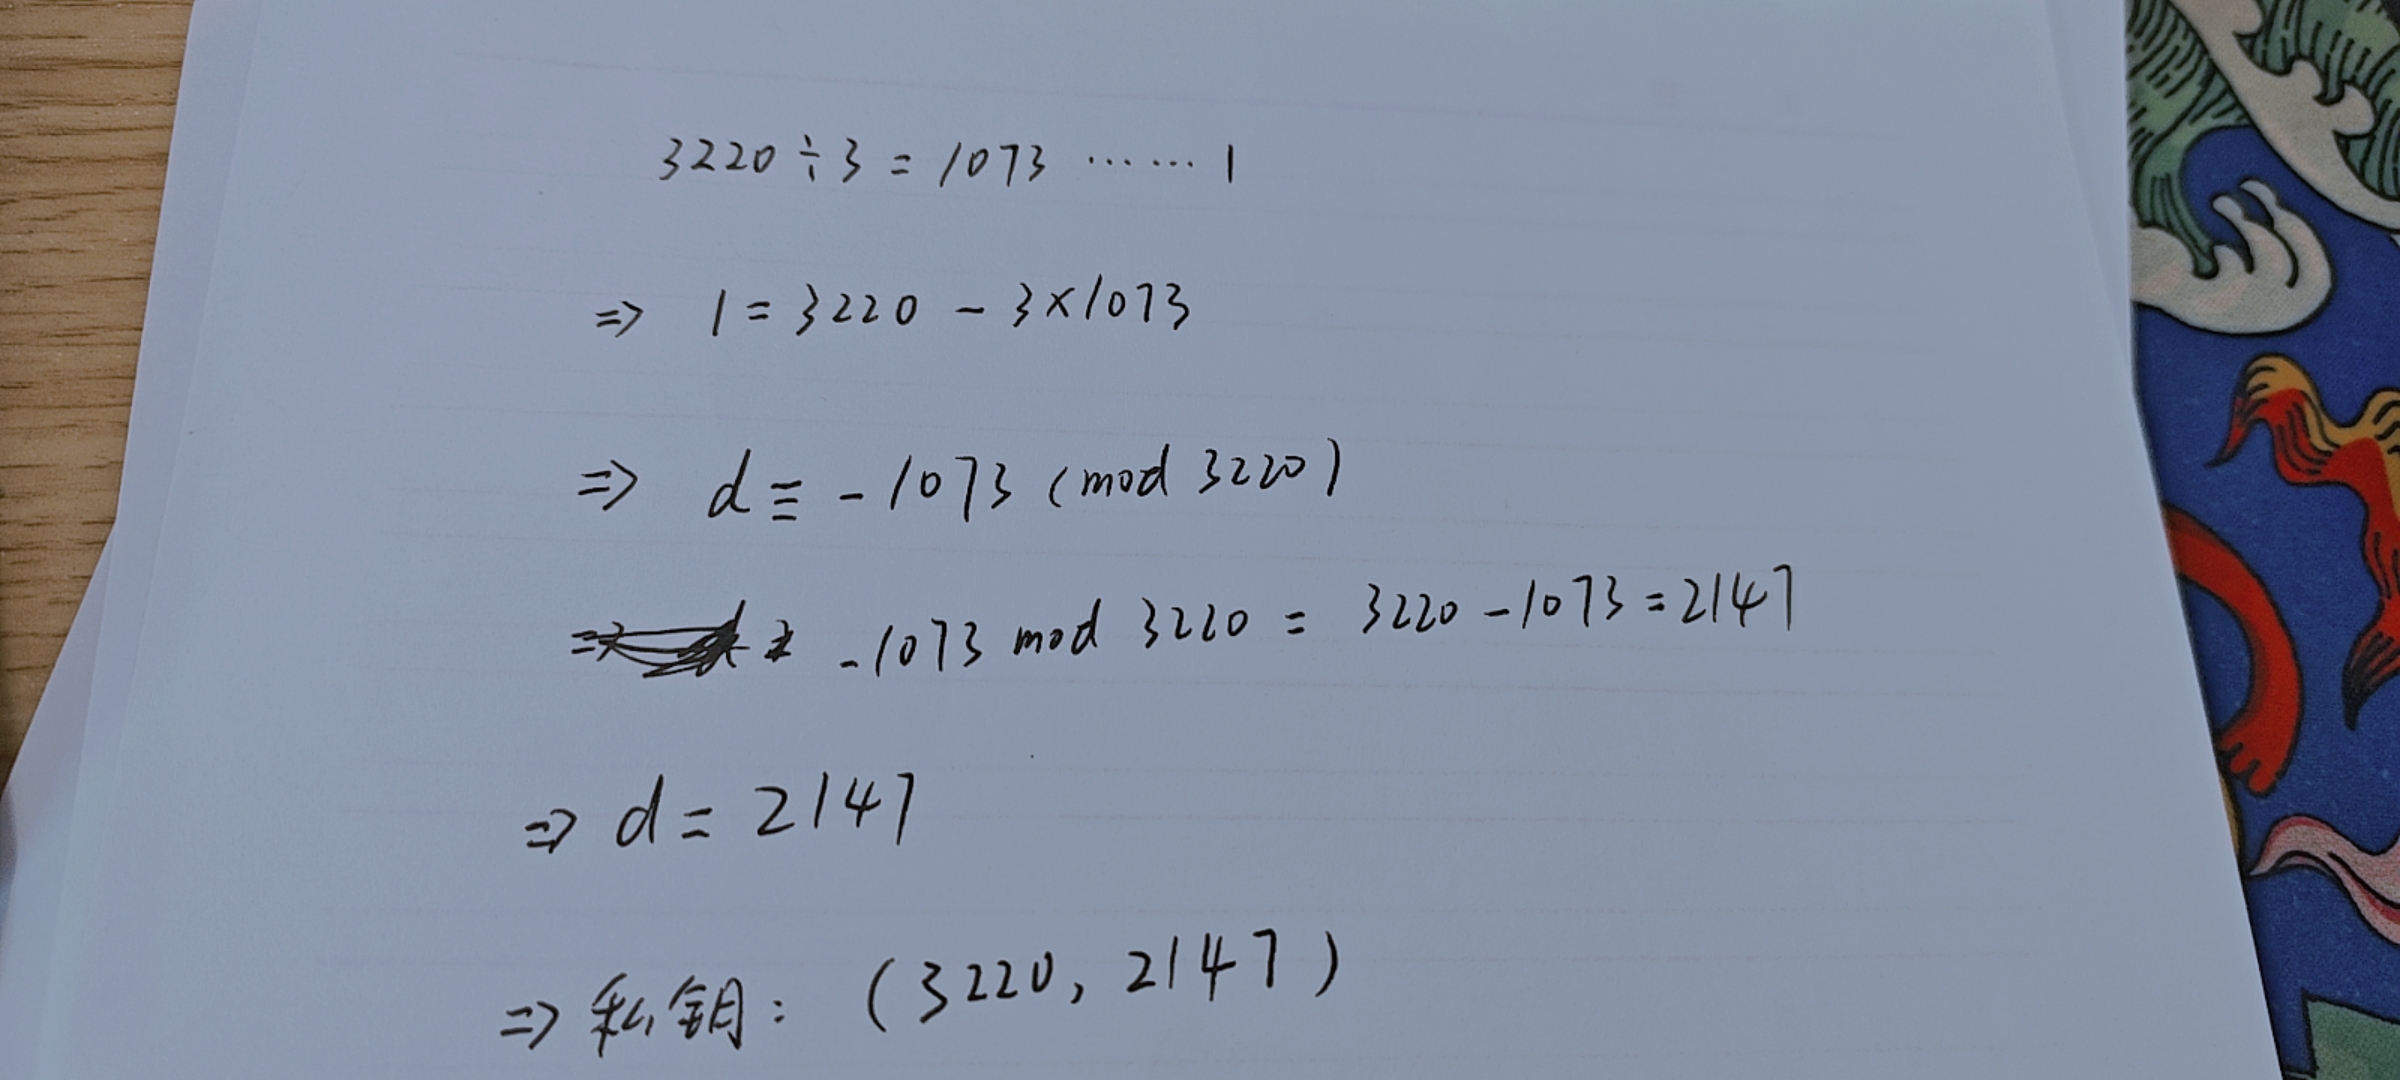 3220 ÷ 3 = 1073 ······ 1
⇒ 1 = 3220 - 3×1073
⇒ d ≡ -1073 (mod 3220)
⇒ -1073 mod 3220 = 3220 - 1073 = 2147
⇒ d = 2147
⇒ 私钥: (3220, 2147)